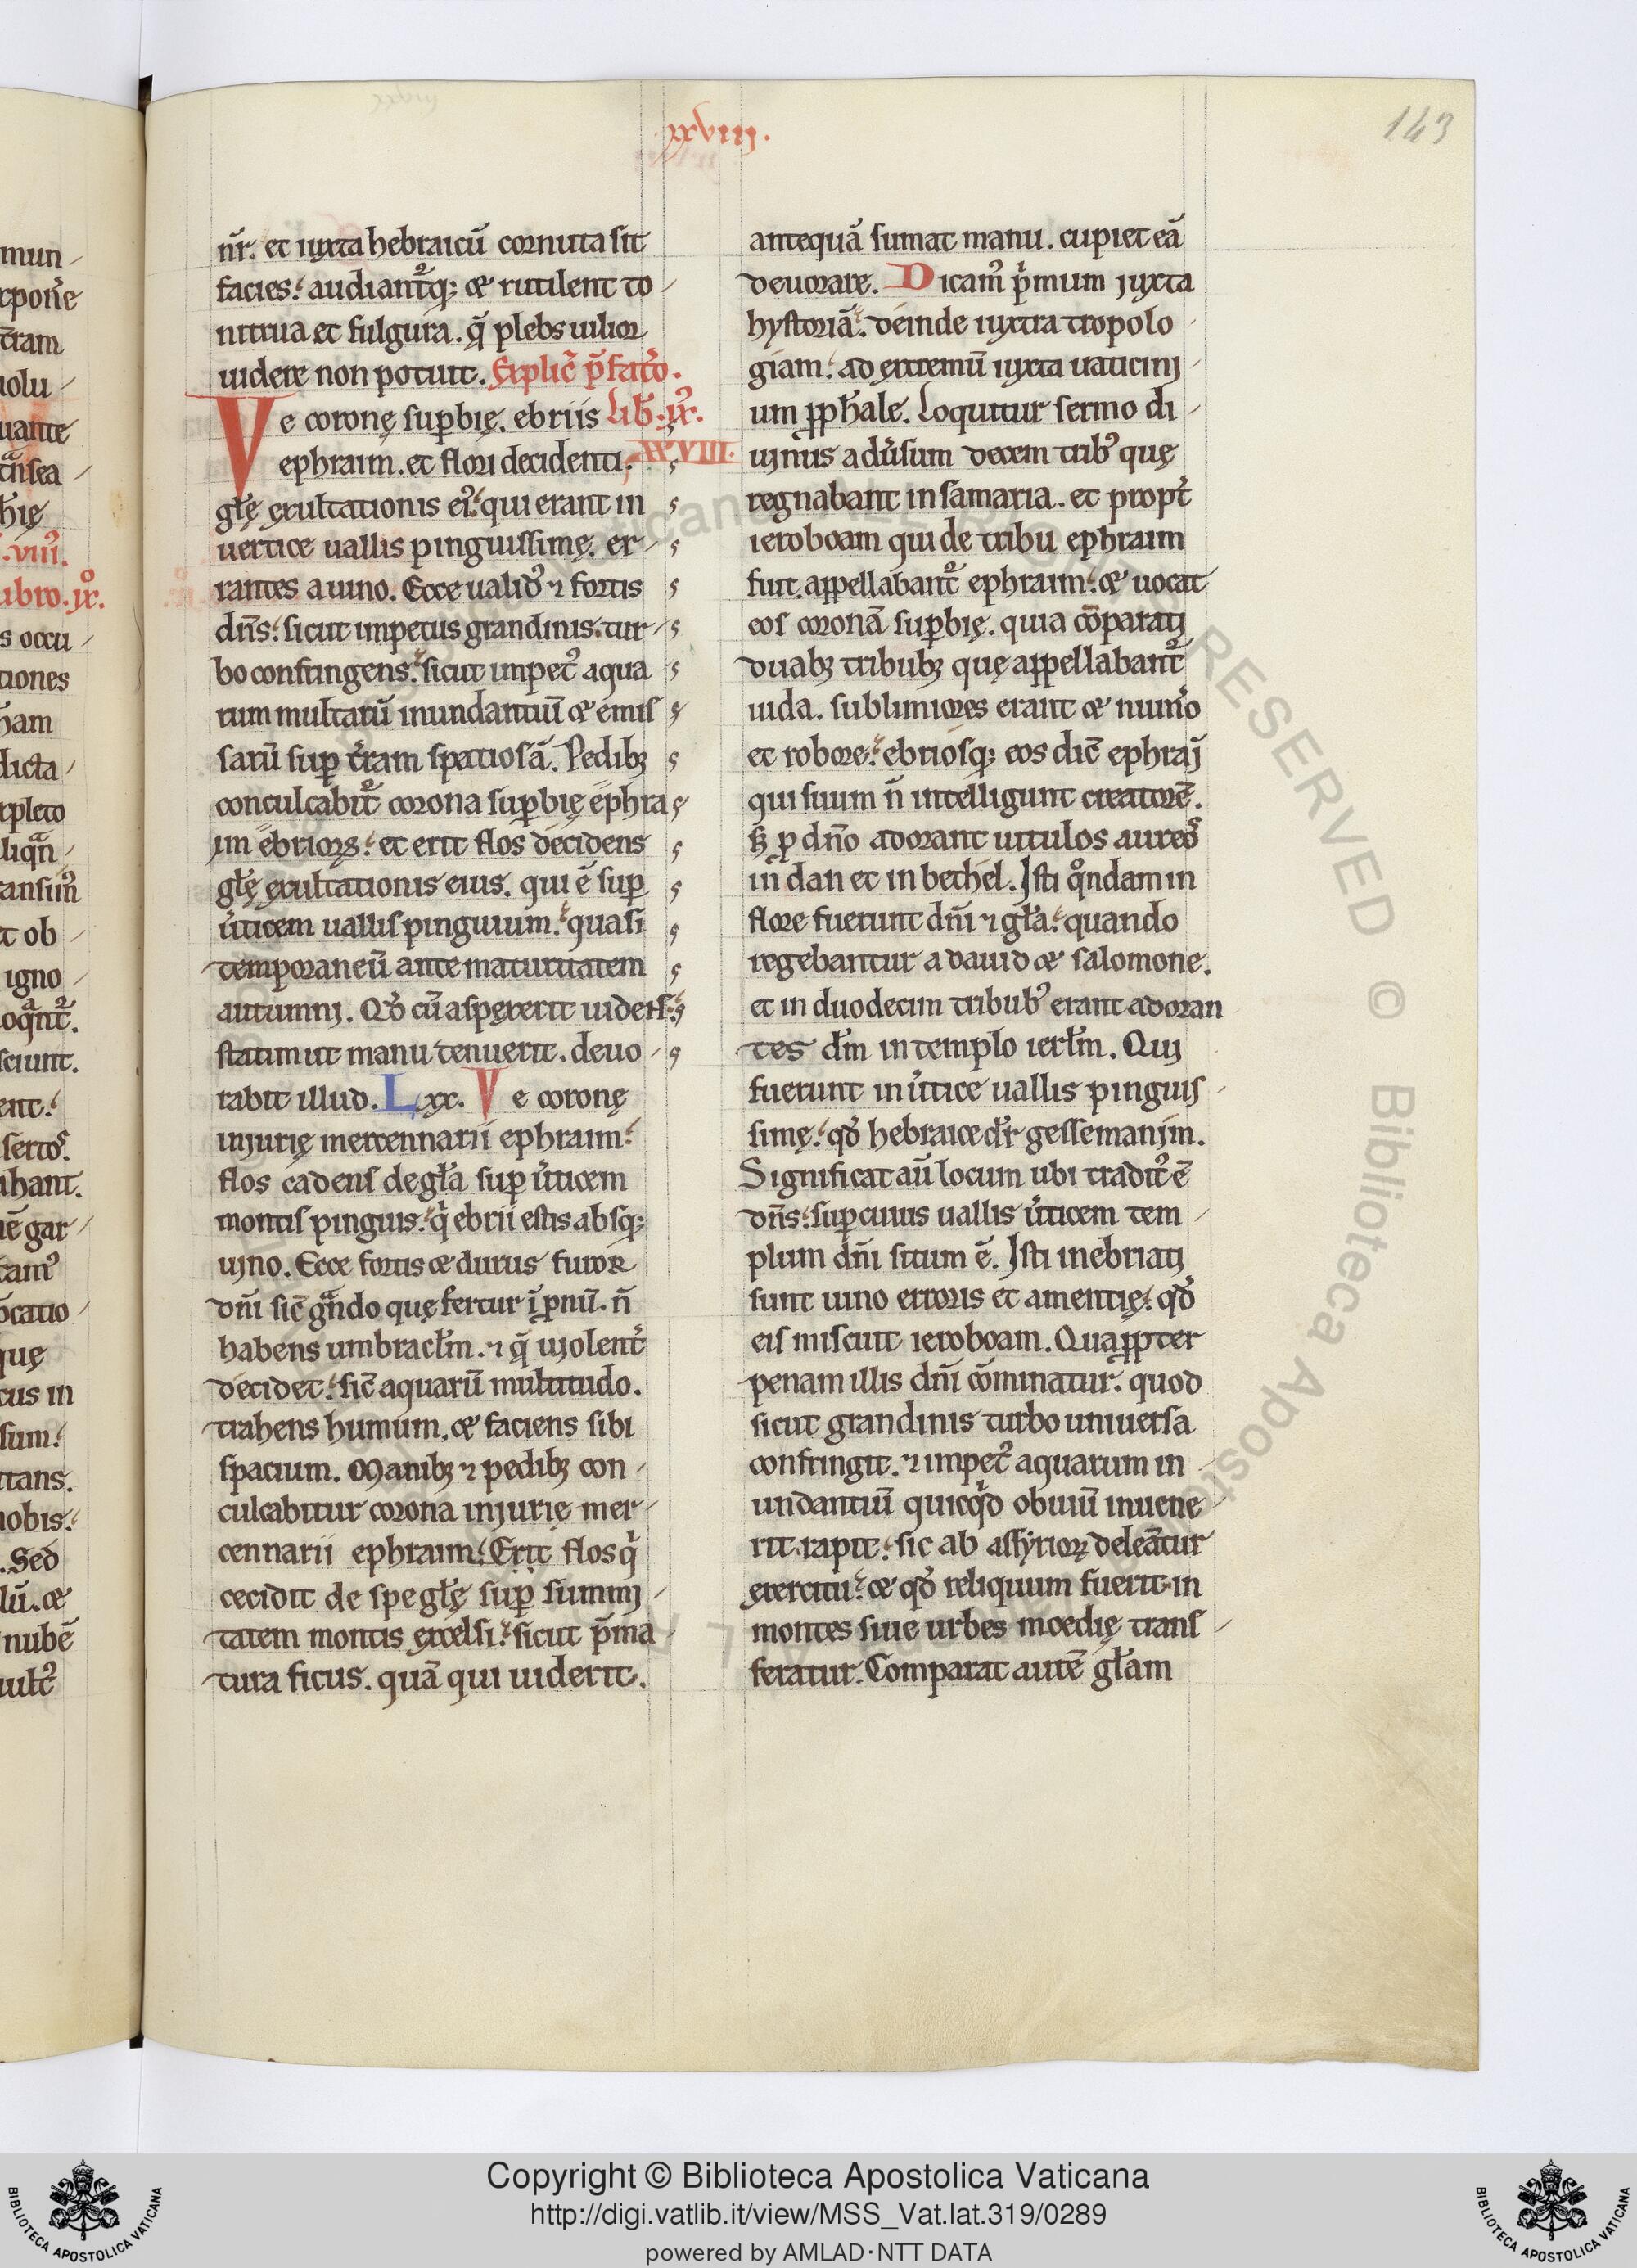 xxviii.
143
nr̄. et iuxta hebraicū cornuta sit
facies: audiantᷣq; & rutilent to-
nitrua et fulgura. q̄ plebs uilior
uidere non potuit. Explic̄ p̄fatio.
Ve coronę sup̲bię. ebriis Lib̄. ix.
ephraim. et flori decidenti. XXVIII.
gl̄ę exultationis ei᷒: qui erant in
uertice uallis pinguissimę. er-
rantes a uino. Ecce ualid᷒ ⁊ fortis
dn̄s: sicut impetus grandinis. tur-
bo confringens: sicut impet᷒ aqua
rum multarū inundantiū & emis
sarū sup̲ t̄ram spatiosā. Pedib;
conculcabit᷒ corona sup̲bię ephra
im ebrioꝝ: et erit flos decidens
gl̄ę exultationis eius. qui ē sup̲
u̓ticem uallis pinguium: quasi
temporaneū ante maturitatem
autumni. Qd̓ cū aspexerit uidens:
statim ut manu tenuerit. deuo-
rabit illud. Lxx. Ve coronę
iniurię mercennarii ephraim:
flos cadens de gl̄a sup̲ u̓ticem
montis pinguis: q̓ ebrii estis absq;
uino. Ecce fortis & durus furor
dn̄i sic̄ gͣndo quę fertur ī p̲nū. n̄
habens umbracl̄m. ⁊ q̄ uiolent̓
decidet: sic̄ aquarū multitudo.
trahens humum. & faciens sibi
spacium. Manib; ⁊ pedib; con-
culcabitur corona iniurię mer-
cennarii ephraim: Erit flos q̓
cecidit de spe gl̄ę sup̲ summi-
tatem montis excelsi: sicut p̄ma
tura ficus. quā qui uiderit.
antequā sumat manu. cupiet eā
deuorare. Dicam᷒ p̓mum iuxta
hystoriā: deinde iuxta tropolo-
giam: ad extremū iuxta uaticini-
um p̲ph̄ale. Loquitur sermo di-
uinus adu̓sum decem trib᷒ quę
regnabant in samaria. et propt̓
ieroboam qui de tribu ephraim
fuit. appellabantᷣ ephraim: & uocat
eos coronā sup̲bię. quia cōparati
duab; tribub; quę appellabantᷣ
iuda. sublimiores erant & num̓o
et robore: ebriosq; eos dic̄ ephrai
qui suum n̄ intelligunt creatorē.
s; p̲ dn̄o adorant uitulos aureos
in dan et in bethel. Isti qͦndam in
flore fuerunt dn̄i ⁊ gl̄a: quando
regebantur a dauid & salomone.
et in duodecim tribub᷒ erant adoran
tes dm̄ in templo ierl̄m. Qui
fuerunt in u̓tice uallis pinguis-
simę: qd̓ hebraice dr̄ gessemanim.
Significat aū locum ubi tradit᷒ ē
dn̄s: sup̲ cuius uallis u̓ticem tem-
plum dn̄i situm ē. Isti inebriati
sunt uino erroris et amentię: qd̓
eis miscuit ieroboam. Quap̲pter
penam illis dn̄i cōminatur. quod
sicut grandinis turbo uniuersa
confringit. ⁊ impet᷒ aquarum in-
undantiū quicqͥd obuiū inuene-
rit. rapit: sic ab assyrioꝝ deleātur
exercitu: & qd̓ reliquum fuerit. in
montes siue urbes moedię trans-
feratur. Comparat autē gl̄am
Copyright © Biblioteca Apostolica Vaticana
http://digi.vatlib.it/view/MSS_Vat.lat.319/0289
powered by AMLAD·NTT DATA